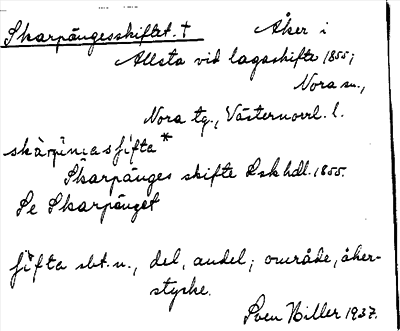 Skarpängesskiftet. † Åker i
Allsta vid lagaskifte 1855;
Nora sn.,
Nora tg., Västernorrl. l.
skàrpinnasfifta*
Skarpänges skifte Lskhdl. 1855.
Se Skarpänget
fifta sbt. n., del, andel; område, åker-
stycke.
Sven Hiller 1937.